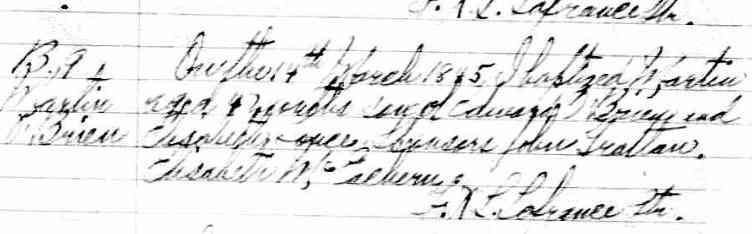 F. X. L. Lafrance Ptr.
B. 9. On the 14th March 1845 I baptized Martin
Martin aged 4 months son of Edward O'Brien and
O'Brien Elisabeth Sponsors John Grattan.
Elisabeth McEachern
F. X. L. Lafrance Ptr.